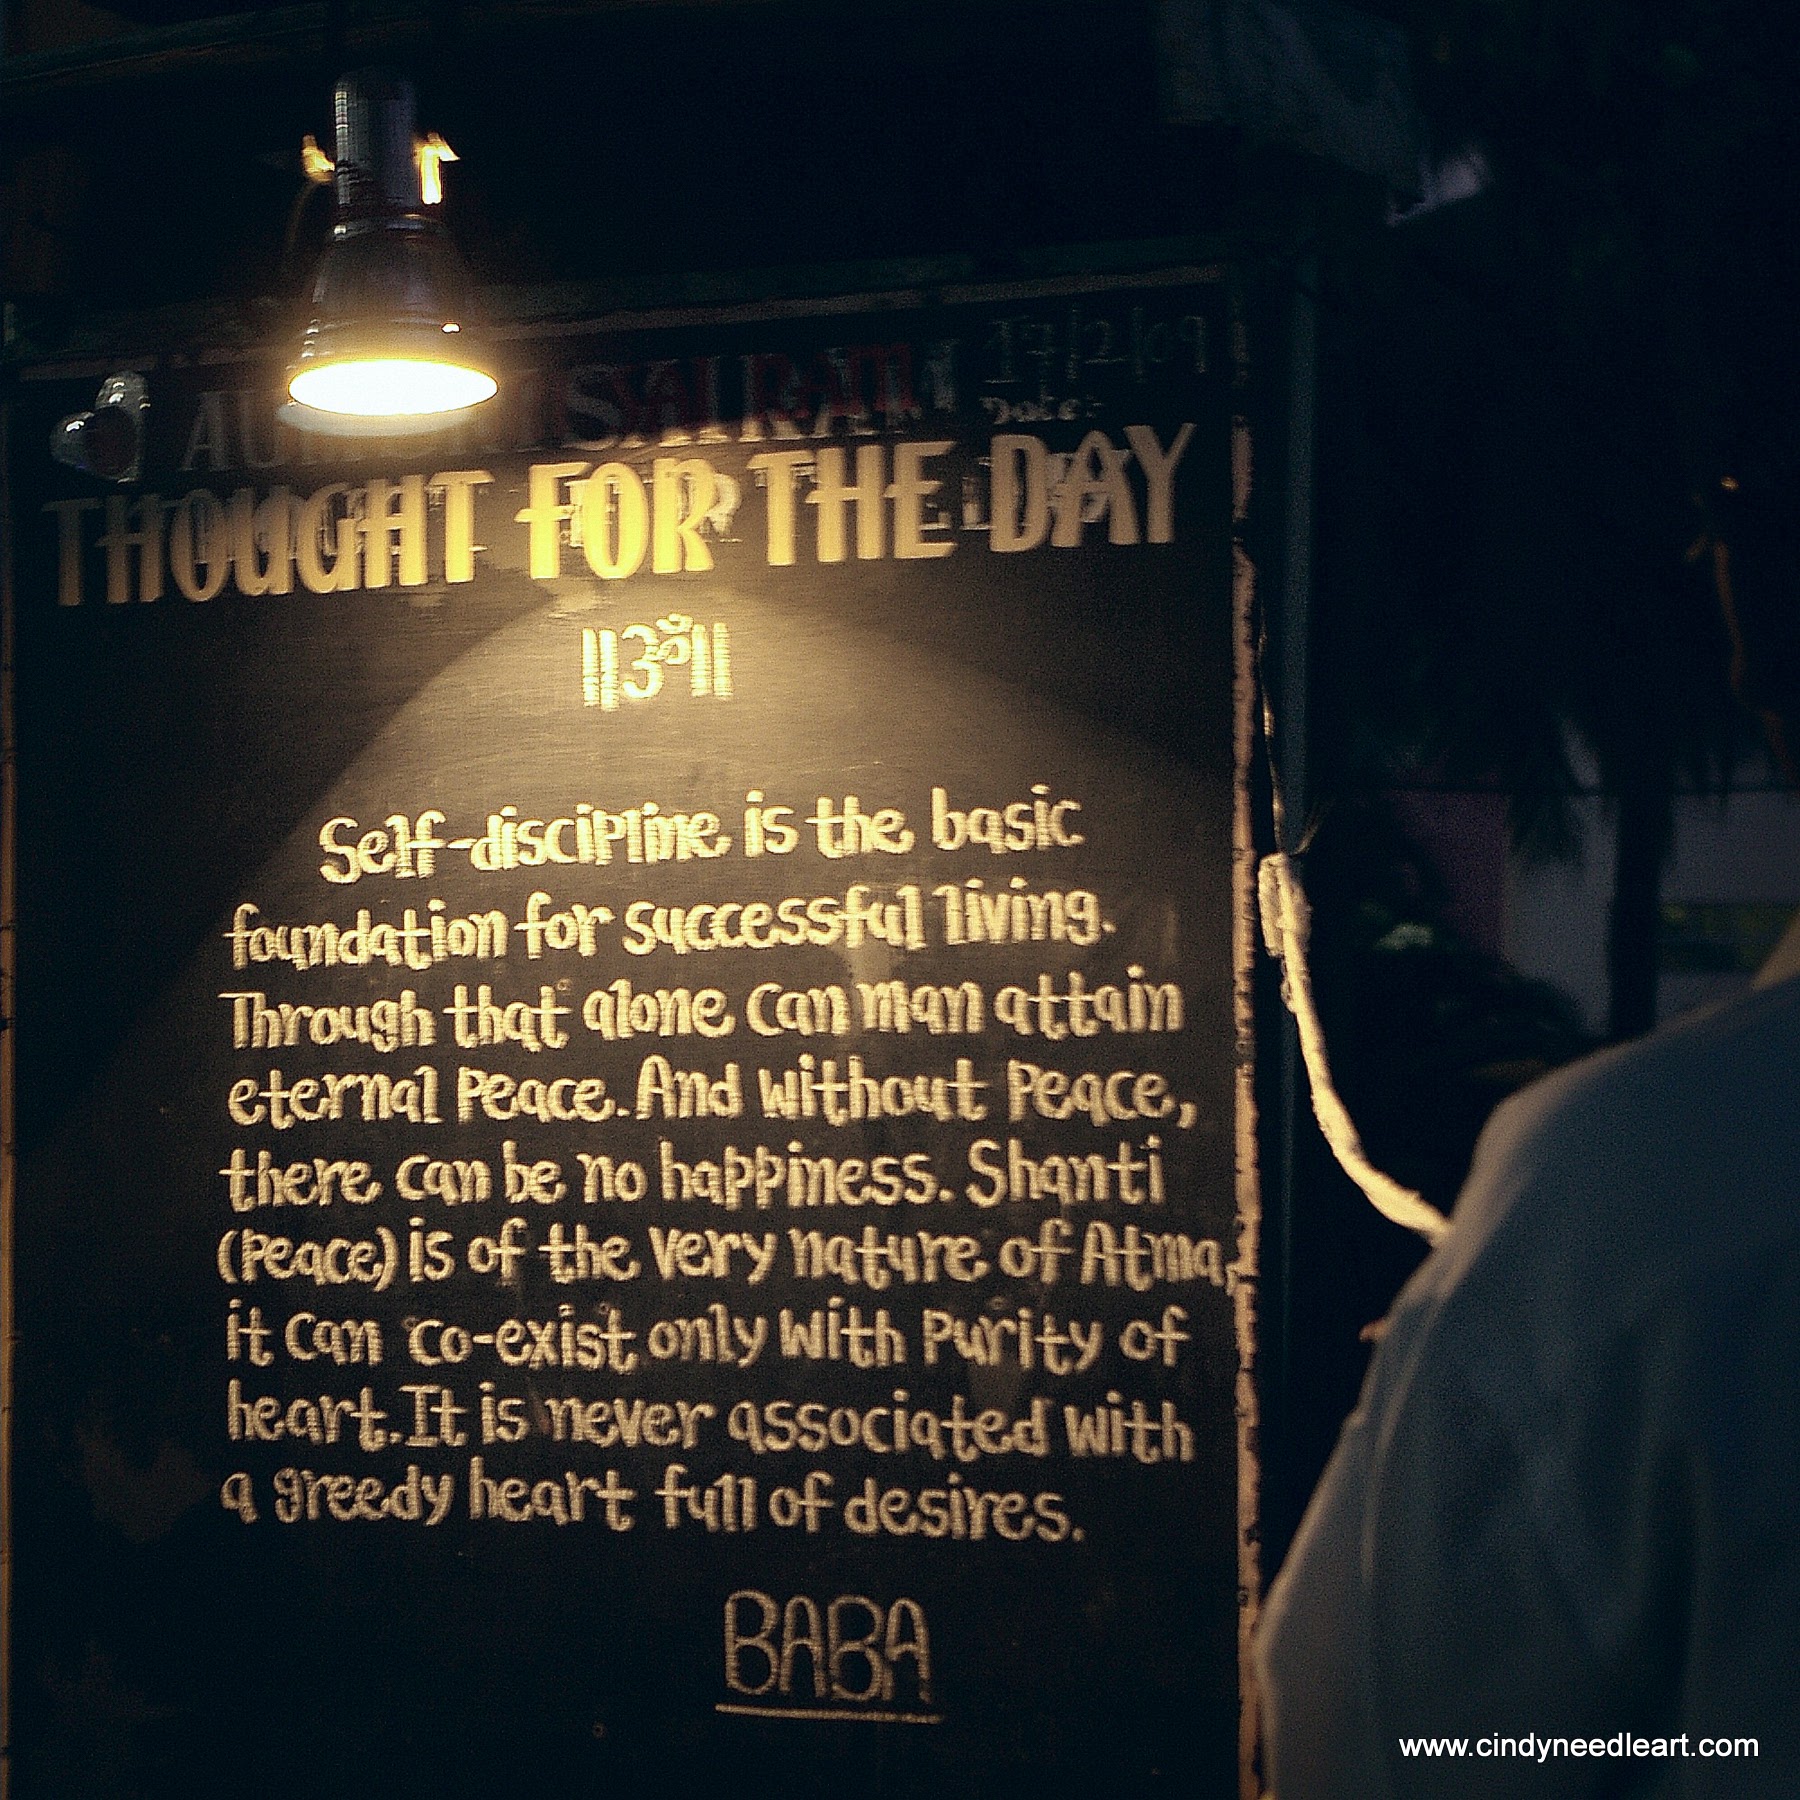 17/2/09
SAI RAM
Date:
THOUGHT FOR THE DAY
॥ॐ॥
Self-discipline is the basic
foundation for successful living.
Through that alone can man attain
eternal peace. And without peace,
there can be no happiness. Shanti
(Peace) is of the very nature of Atma,
it can co-exist only with purity of
heart. It is never associated with
a greedy heart full of desires.
BABA
www.cindyneedleart.com